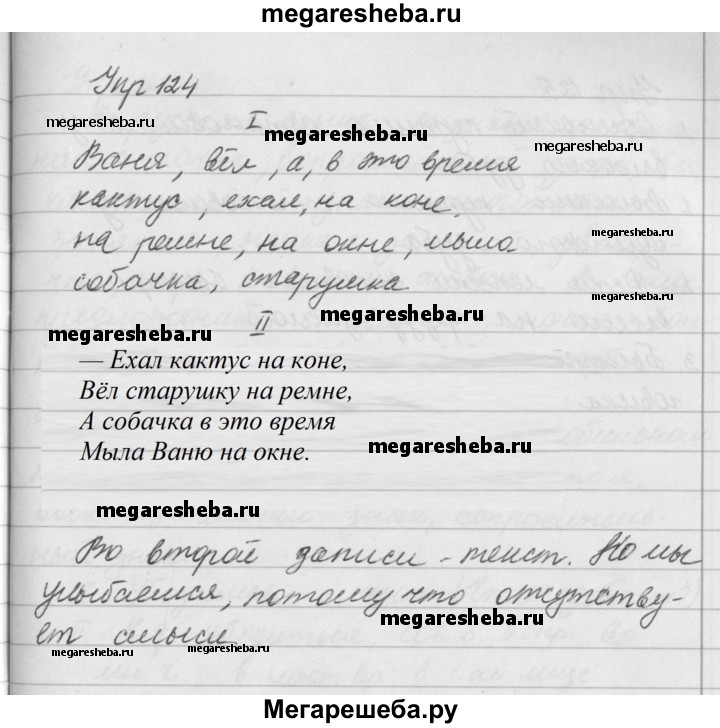 megaresheba.ru
Упр 124
megaresheba.ru
I
megaresheba.ru
Ваня, вёл, а, в это время
кактус, ехал, на коне,
megaresheba.ru
на ремне, на окне, мыла
собачка, старушка
megaresheba.ru
megaresheba.ru
II
— Ехал кактус на коне,
Вёл старушку на ремне,
А собачка в это время
Мыла Ваню на окне.
megaresheba.ru
megaresheba.ru
Во второй записи - текст. Но мы
улыбаемся, потому что отсутству-
megaresheba.ru
ет смысл
megaresheba.ru
megaresheba.ru
Мегарешеба.ру